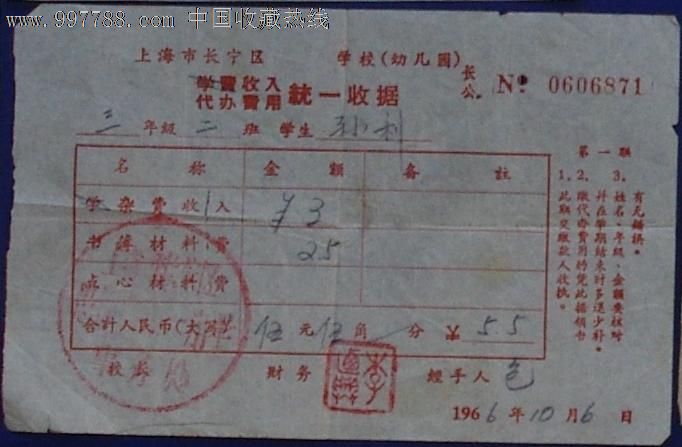 www.997788.com 中国收藏热线
上海市长宁区 学校(幼儿园)
学费收入
代办费用 統一收据
长公. № 0606871
三 年級 二 班 学生 孙利
名称 金額 备註
学杂費收入 ¥3
书簿材料費 25
点心材料費
合計人民币(大写) 伍元伍角 分 ¥ 5.5
校章 財务 經手人 包
1966年10月6日
第一联
1. 此联交繳款人收执。
2. 繳代办費用的凭此据报销
并在学期結末时多退少补。
3. 姓名、年級、金額要核对
有无錯誤。